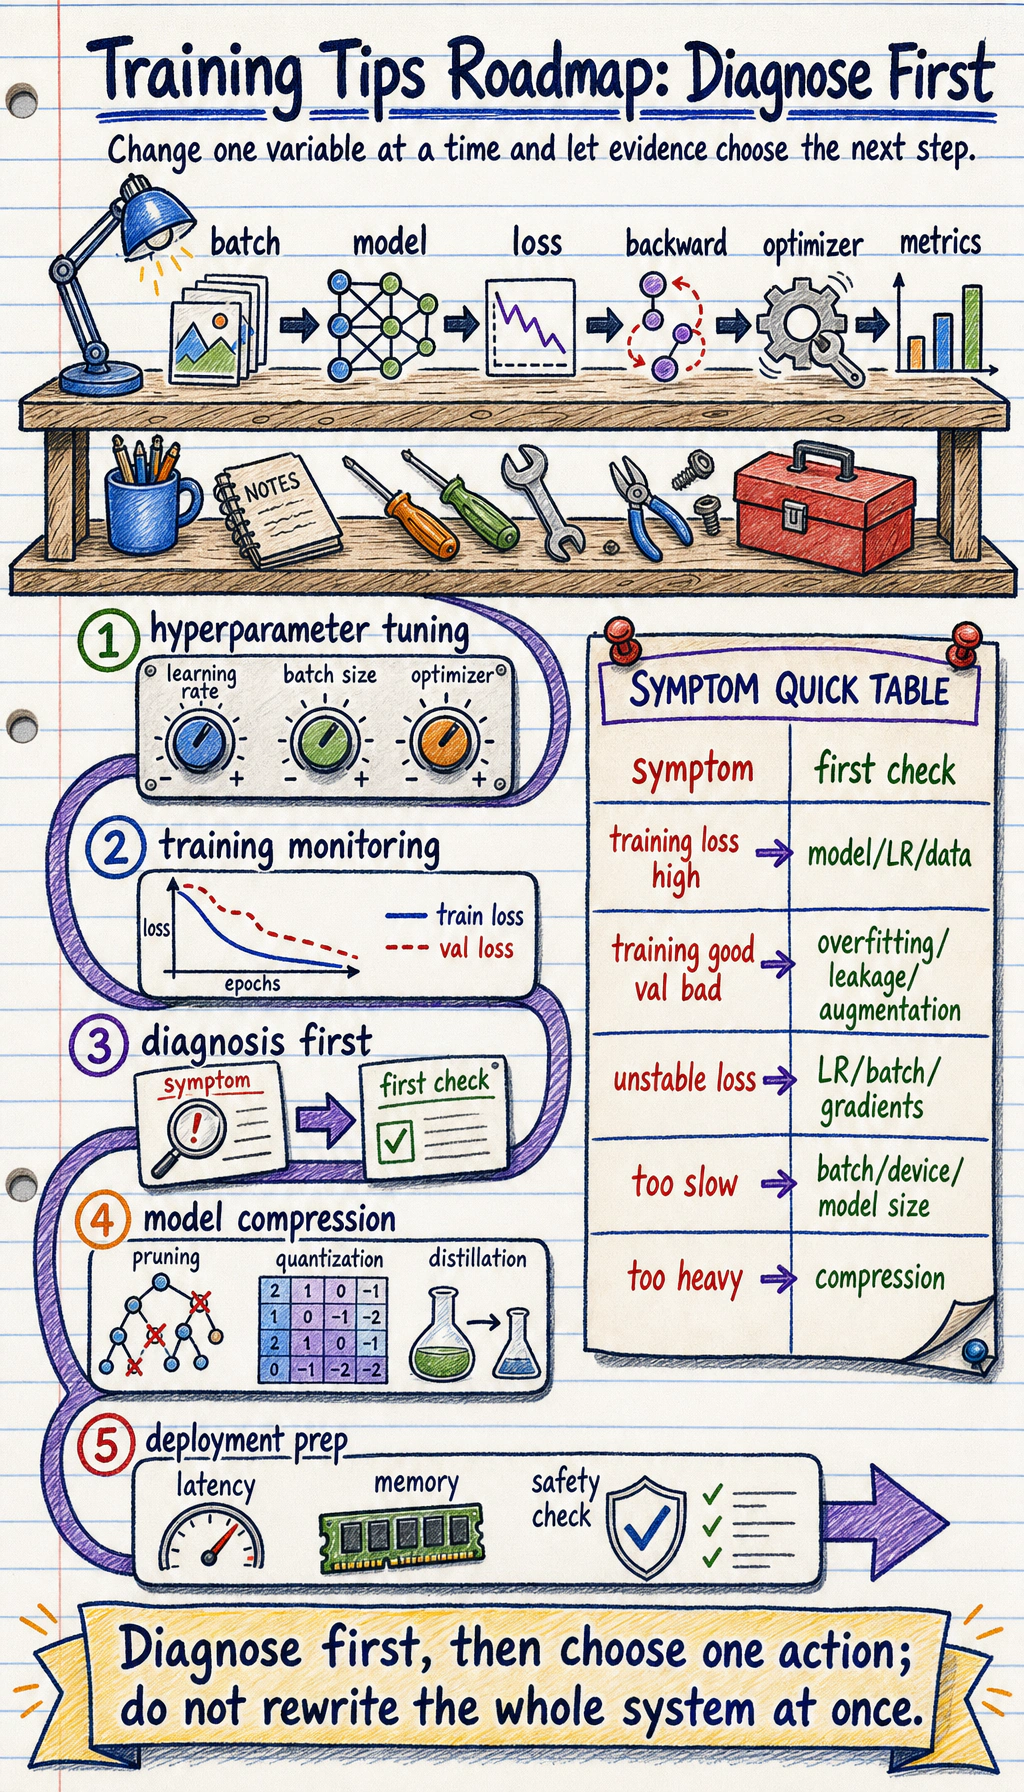 Training Tips Roadmap: Diagnose First
Change one variable at a time and let evidence choose the next step.
batch
model
loss
backward
optimizer
metrics
NOTES
1 hyperparameter tuning
learning
rate
batch size
optimizer
- +
- +
- +
2 training monitoring
loss
epochs
train loss
val loss
3 diagnosis first
symptom
!
first check
4 model compression
pruning
quantization
distillation
2 1 0 -1
1 0 -1 -2
2 1 0 -1
0 -1 -2 -2
5 deployment prep
latency
memory
safety
check
SYMPTOM QUICK TABLE
symptom
first check
training loss
high
model/LR/data
training good
val bad
overfitting/
leakage/
augmentation
unstable loss
LR/batch/
gradients
too slow
batch/device/
model size
too heavy
compression
Diagnose first, then choose one action;
do not rewrite the whole system at once.